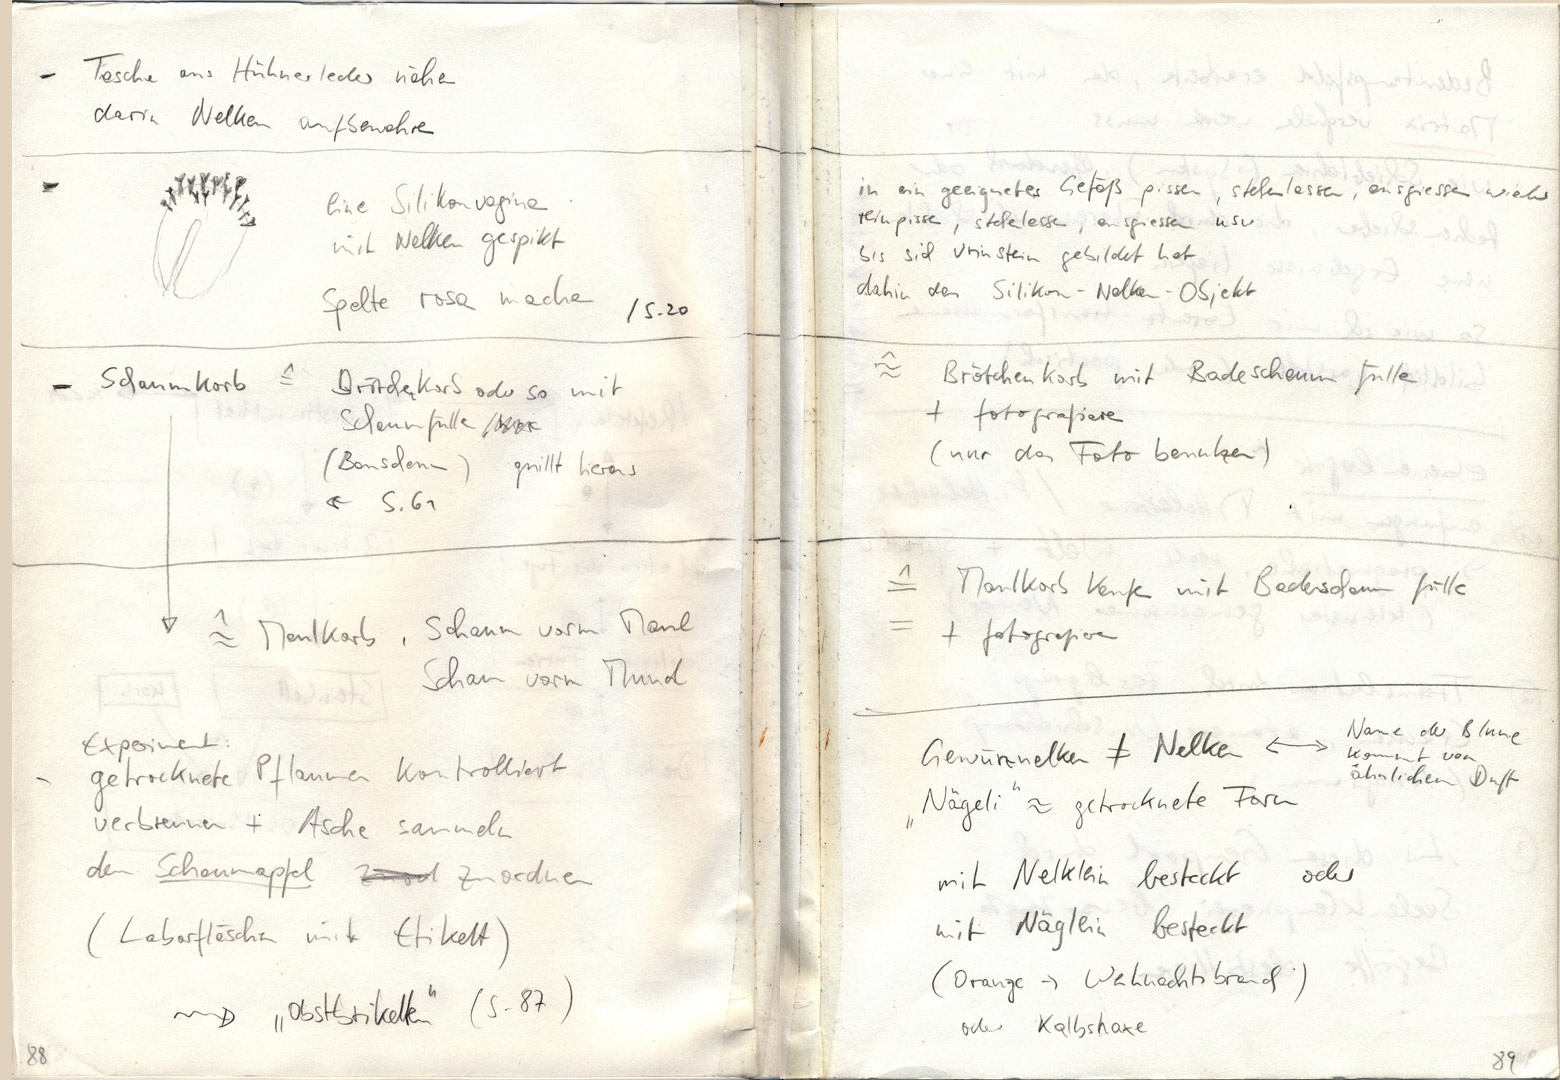 - Tasche aus Hühnerleder nähen
darin Nelken aufbewahren
- eine Silikonvagina
mit Nelken gespikt
Spalte rosa machen
/S.20
- Schaumkorb ≙ Brötchenkorb oder so mit
Schaum füllen
(Bauschaum) quillt heraus
← S.61
≙
≈ Maulkorb, Schaum vorm Maul
Schaum vorm Mund
Experiment:
- getrocknete Pflaumen kontrolliert
verbrennen + Asche sammeln
dem Schaumapfel zuordnen
(Laborfläschchen mit Etikett)
⇝ „Obstbriketten“ (S. 87)
88
in ein geeignetes Gefäß pissen, stehenlassen, ausgiessen wieder
reinpissen, stehenlassen, ausgiessen usw
bis sich Urinstein gebildet hat
dahin das Silikon-Nelken-Objekt
≙
≈ Brötchenkorb mit Badeschaum füllen
+ fotografieren
(nur das Foto benutzen)
≙ Maulkorb kaufen mit Badeschaum füllen
= + fotografieren
Gewürznelken ≠ Nelken ↔ Name der Blume
kommt vom
ähnlichen Duft
„Nägeli“ ≈ getrocknete Form
mit Nelklein besteckt oder
mit Näglein besteckt
(Orange → Weihnachtsbrauch)
oder Kalbshaxe
89